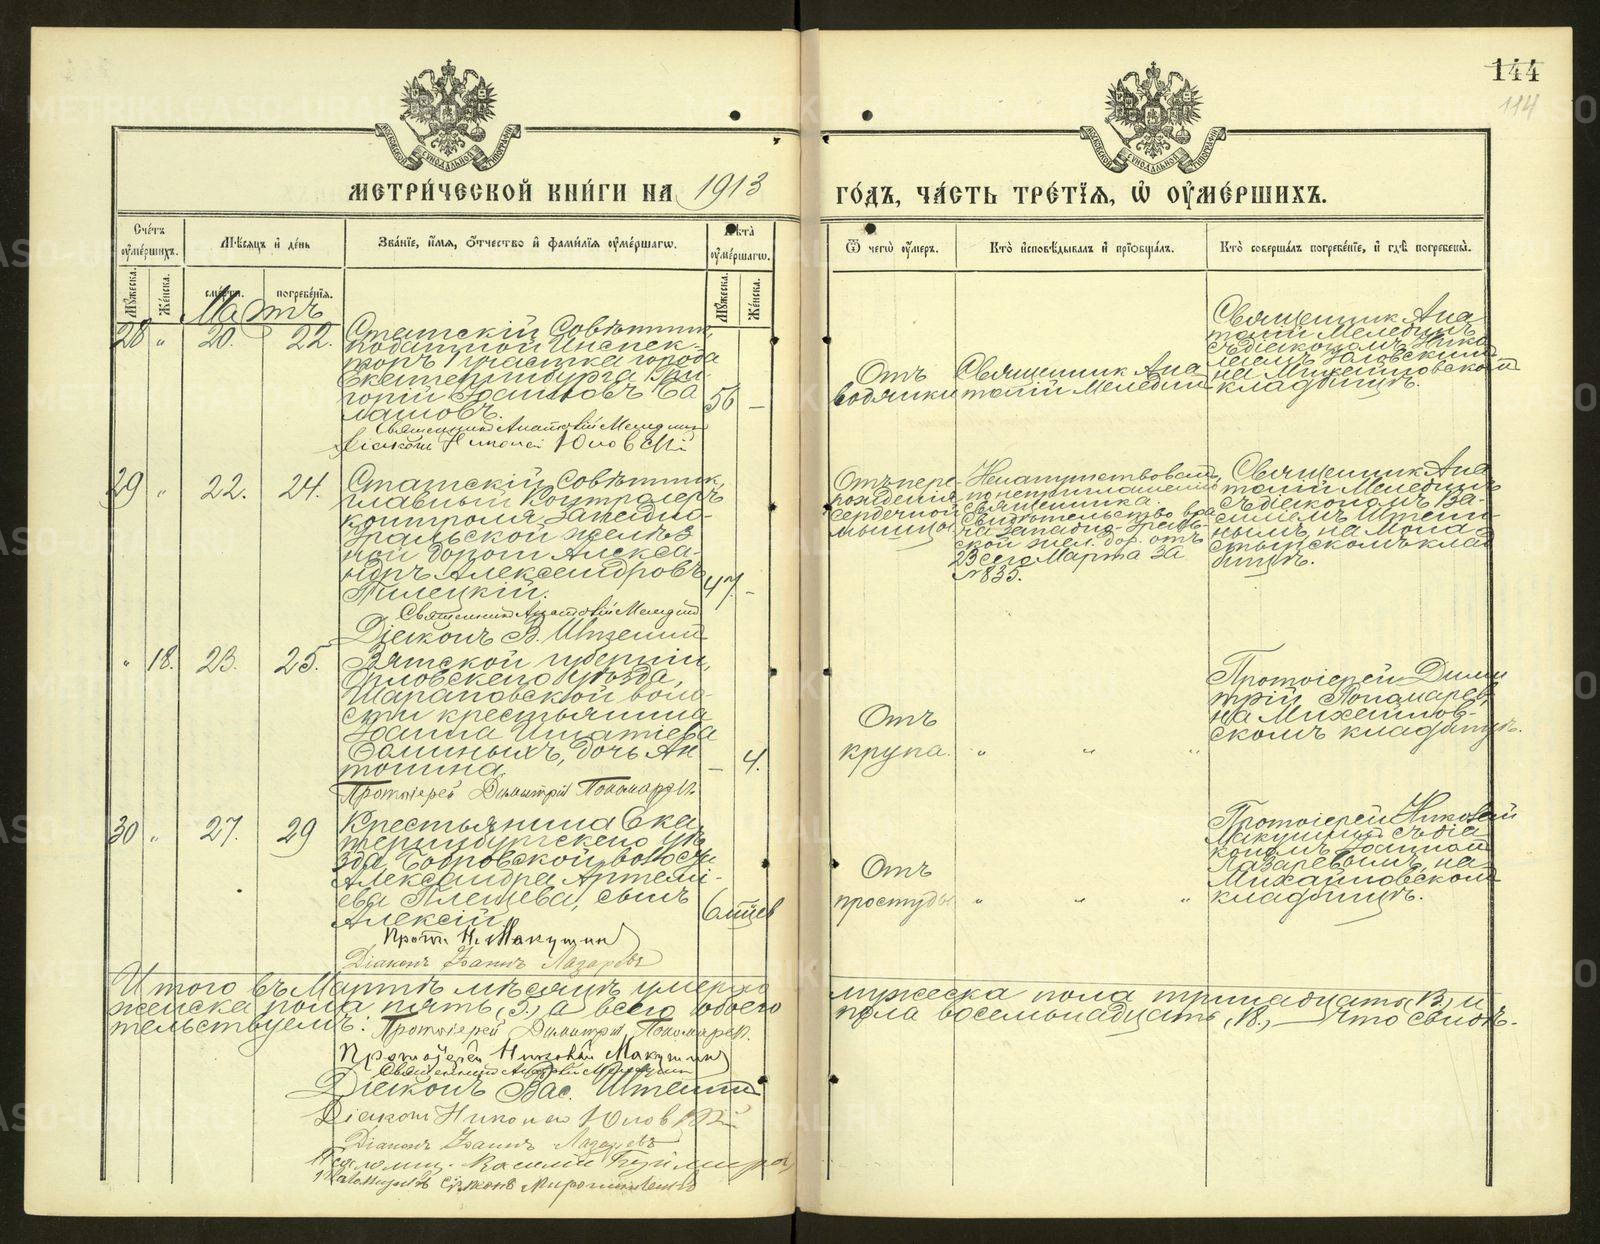 144
114
МЕТРИ́ЧЕСКОЙ КНИ́ГИ НА 1913 ГО́ДЪ, ЧА́СТЬ ТРЕ́ТІЯ, Ѡ҆ ОУ҆МЕ́РШИХЪ.
Сче́тъ оу҆ме́ршихъ.
Мѣ́сяцъ и҆ де́нь
Зва́нїе, и҆́мя, ѻ҆́тчество и҆ фами́лїя оу҆ме́ршагѡ.
Лѣта̀ оу҆ме́ршагѡ.
Ѿ чегѡ̀ оу҆́меръ.
Кто̀ и҆сповѣ́дывалъ и҆ прїѡбща́лъ.
Кто̀ соверша́лъ погребе́нїе, и҆ гдѣ̀ погребены̀.
Мꙋ́жеска.
Же́нска.
сме́рти.
погребе́нїя.
Мꙋ́жеска.
Же́нска.
Мартъ
28 " 20. 22.
Статскій Совѣтник
податной Инспек-
торъ 1 участка города
Екатеринбурга Гри-
горій Іоанновъ Ба
лашовъ.
56 —
Священникъ Анатолій Меледин
Діаконъ Николай Юловскій
Отъ
водянки
Священник Ана
толій Меледин
Священник Ана
толій Меледин
съ діаконом Нико
лаем Юловским
на Михайловском
кладбищѣ.
29 " 22. 24.
Статскій Совѣтник,
главный Контролеръ
контроля Западно-
Уральской желѣз
ной дороги Алекса-
ндръ Александровъ
Тилецкій.
47. -
Священникъ Анатолій Меледин
Діаконъ В. Иттенин
Отъ пере-
рожденія
сердечной
мышцы
Ненапутствован
по неприглашенію
священника.
Свидѣтельство вра
ча Западно-Ураль-
ской жел. дор. отъ
23 сего Марта за
№ 835.
Священник Ана
толій Меледин
съ діаконом Ва-
силіем
на Мона
стырском клад
бищѣ.
" 18. 23. 25.
Вятской губерніи,
Орловскаго уѣзда,
Шарановской воло
сти крестьянина
Іоанна Игнатіева
дочь Ан
тонина.
— 4.
Протоіерей Димитрій Пономаревъ
Отъ
крупа. " " "
Протоіерей Дими
трій Пономарев,
на Михайлов-
скомъ кладбищѣ.
30 " 27. 29
Крестьянина Ека
теринбургскаго уѣ
зда Бобровской волости
Александра Артемі-
ева Плещева, сынъ
Алексій.
6 мѣцев
Прот. Н. Макушин
Діаконъ Іоаннъ Лазаревъ
Отъ
простуды " " "
Протоіерей Николай
Макушин съ діа
кономъ Іоанном
Лазаревым, на
Михайловском
кладбищѣ.
Итого въ Мартѣ мѣсяцѣ умерло мужеска пола тринадцать (13) и
женска пола пять, (5,) а всего обоего пола восемнадцать, (18,) — что свидѣ-
тельствуемъ: Протоіерей Димитрій Пономаревъ.
Протоіерей Николай Макушин
Священникъ Анатолій Меледин
Діаконъ Вас.
Діаконъ Николай Юловскій
Діаконъ Іоаннъ Лазаревъ
Псаломщ. Василій
Псаломщикъ Сумеонъ